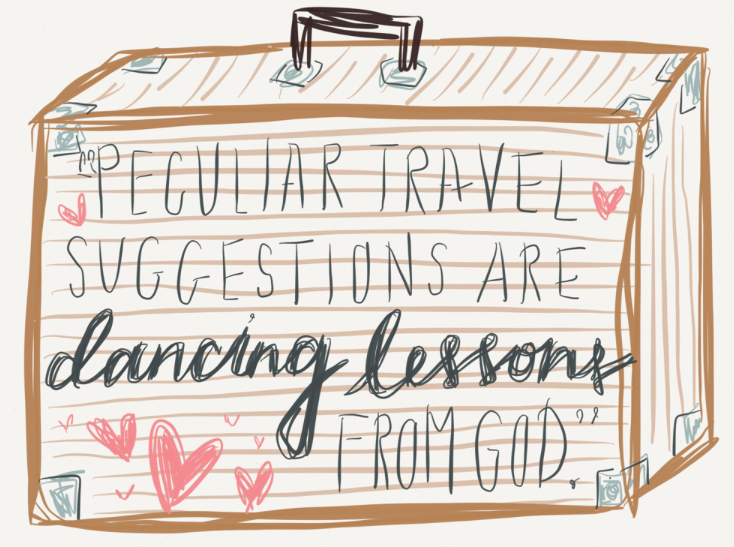 "PECULIAR TRAVEL
SUGGESTIONS ARE
dancing lessons
FROM GOD."